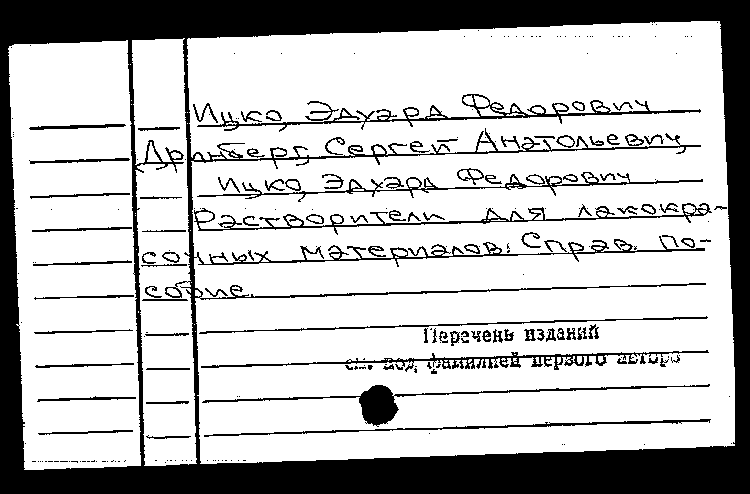 Ицко, Эдуард Федорович
Дринберг, Сергей Анатольевич,
Ицко, Эдуард Федорович
Растворители для лакокра-
сочных материалов: Справ. по-
собие.
Перечень изданий
см. под фамилией первого автора